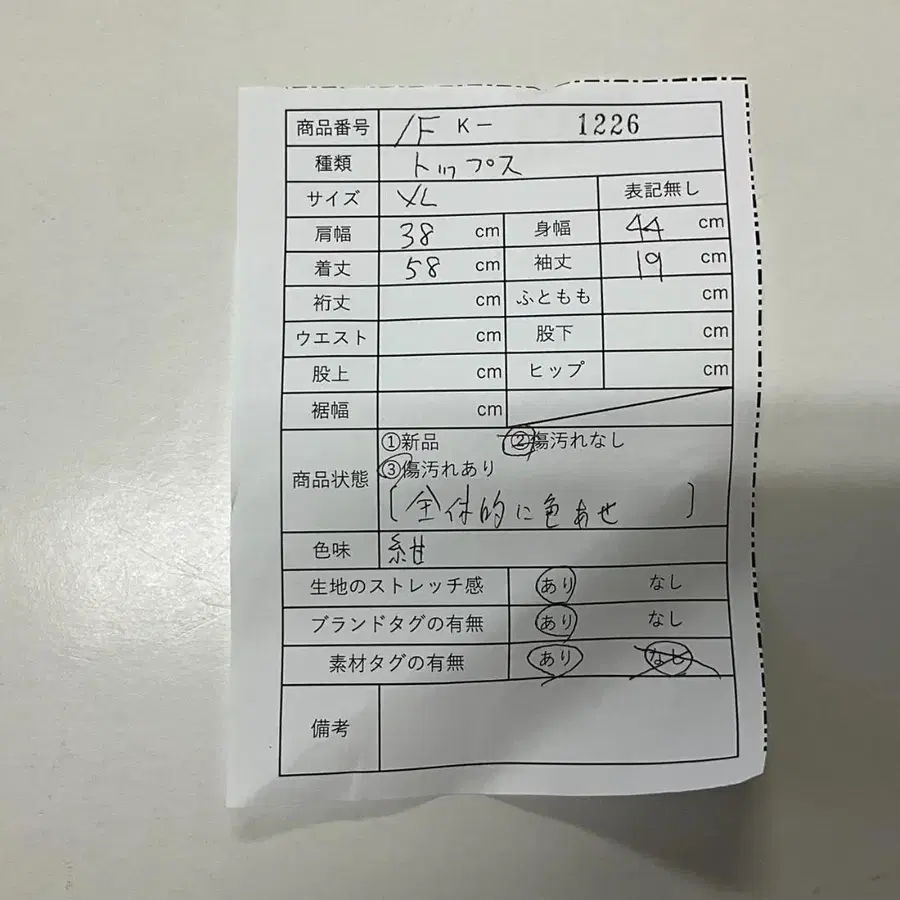 商品番号 /F K- 1226
種類 トップス
サイズ XL 表記無し
肩幅 38 cm 身幅 44 cm
着丈 58 cm 袖丈 19 cm
裄丈 cm ふともも cm
ウエスト cm 股下 cm
股上 cm ヒップ cm
裾幅 cm
商品状態 ①新品 ②傷汚れなし
③傷汚れあり
[全体的に色あせ]
色味 紺
生地のストレッチ感 あり なし
ブランドタグの有無 あり なし
素材タグの有無 あり なし
備考